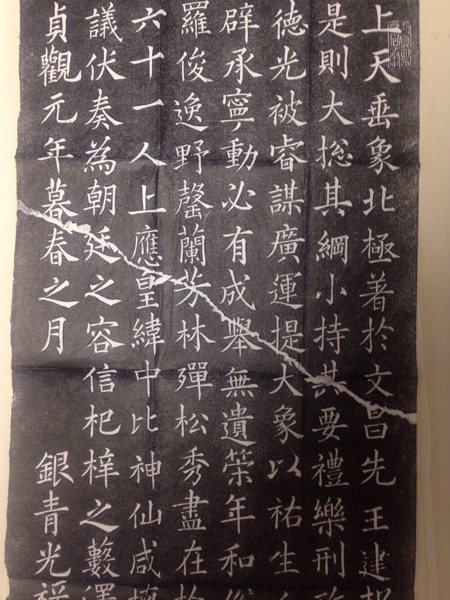 上天垂象北極著於文昌先王建
是則大揔其綱小持其要禮樂刑
德光被睿謀廣運提大象以祐生
辟承寧動必有成舉無遺筞年和
羅俊逸野罄蘭芳林殫松秀盡在
六十一人上應皇緯中比神仙咸
議伏奏為朝廷之容信杞梓之藪澤
貞觀元年暮春之月 銀青光祿